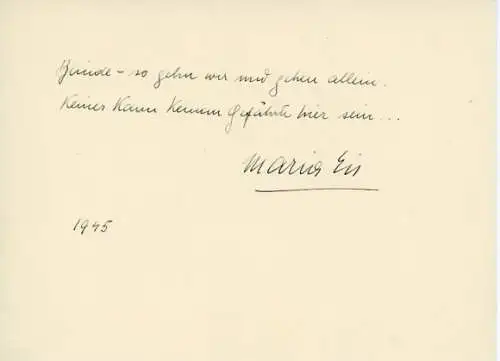 Blinde – so gehn wir und gehen allein.
Keiner kann Keinem Gefährte hier sein...
Maria Eis
1945